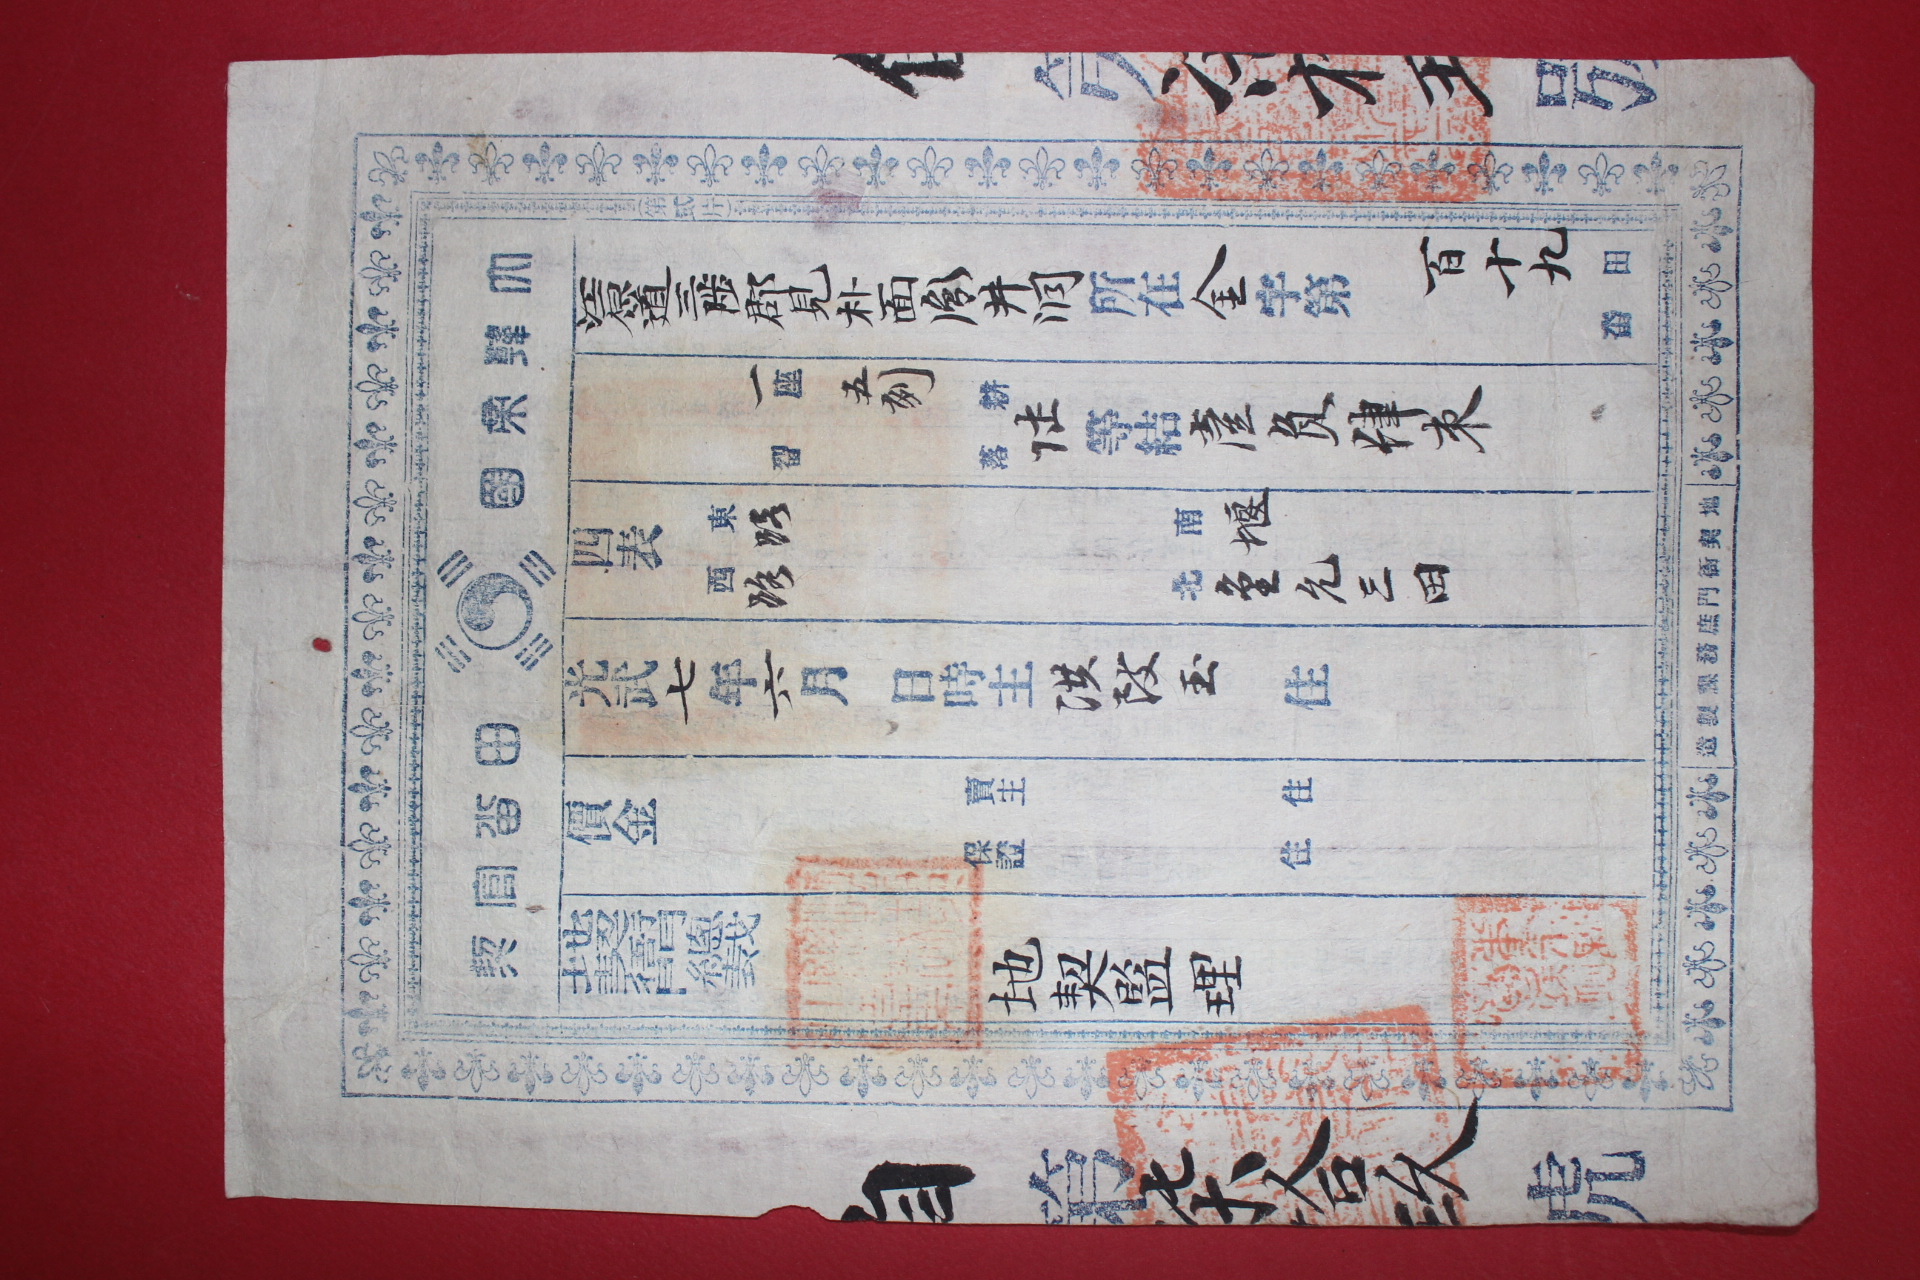 大韓帝國 田畓官契
(第貳片)
江原道三陟郡見朴面鳳井洞所在金字第百十九 田畓
一座 五刻耕
畓 落 陸等結壹負肆束
四表 東路 西路 南堰 北金允三田
光武七年六月 日時主洪 玉 住
價金 賣主 住
保證 住
地契衙門總裁 地契監理
地契衙門庶務課製造
第柒拾玖號